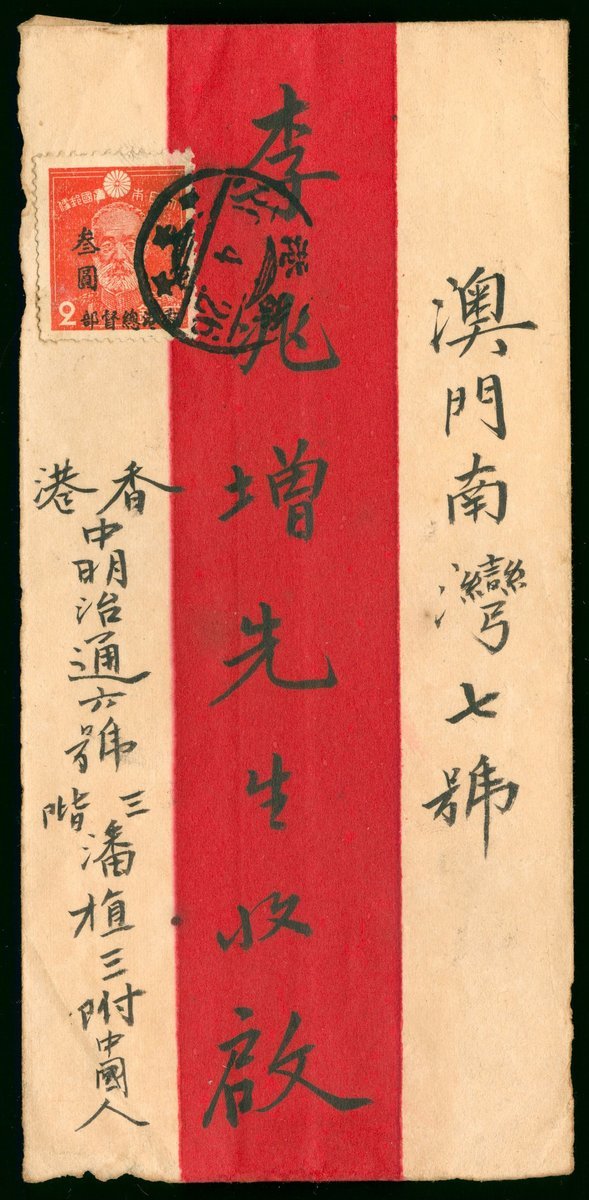 澳門南灣七號
李兆增先生收啟
香港
中明治通六號三階
潘植三附中國人
大日本帝國郵便
叁圓
香港總督部
2
4
26